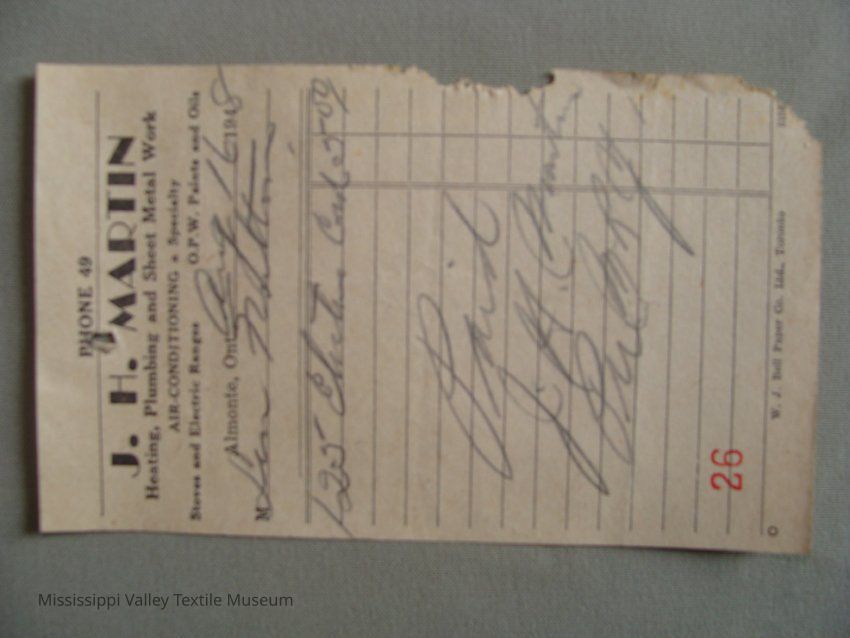 PHONE 49
J. H. MARTIN
Heating, Plumbing and Sheet Metal Work
AIR-CONDITIONING a Specialty
Stoves and Electric Ranges O.P.W. Paints and Oils
Almonte, Ont Aug 16 1948
M
125 Electric Cord 5 09
Paid
J. H. Martin
Per
26
W. J. Bell Paper Co. Ltd., Toronto
Mississippi Valley Textile Museum